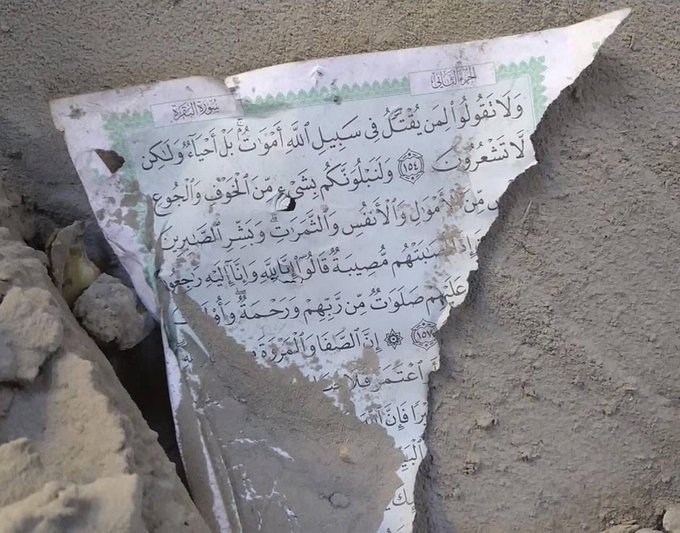 الجزء الثاني
سورة البقرة
وَلَا تَقُولُوا۟ لِمَن يُقْتَلُ فِى سَبِيلِ ٱللَّهِ أَمْوَٰتٌۢ ۚ بَلْ أَحْيَآءٌ وَلَٰكِن
لَّا تَشْعُرُونَ ١٥٤ وَلَنَبْلُوَنَّكُم بِشَىْءٍ مِّنَ ٱلْخَوْفِ وَٱلْجُوعِ
مِّنَ ٱلْأَمْوَٰلِ وَٱلْأَنفُسِ وَٱلثَّمَرَٰتِ ۗ وَبَشِّرِ ٱلصَّٰبِرِينَ
مُّصِيبَةٌ قَالُوٓا۟ إِنَّا لِلَّهِ وَإِنَّآ إِلَيْهِ رَٰجِعُو
عَلَيْهِمْ صَلَوَٰتٌ مِّن رَّبِّهِمْ وَرَحْمَةٌ ۖ
١٥٧ إِنَّ ٱلصَّفَا وَٱلْمَرْوَةَ
ٱعْتَمَرَ فَلَا
فَإِنَّ ٱللَّهَ